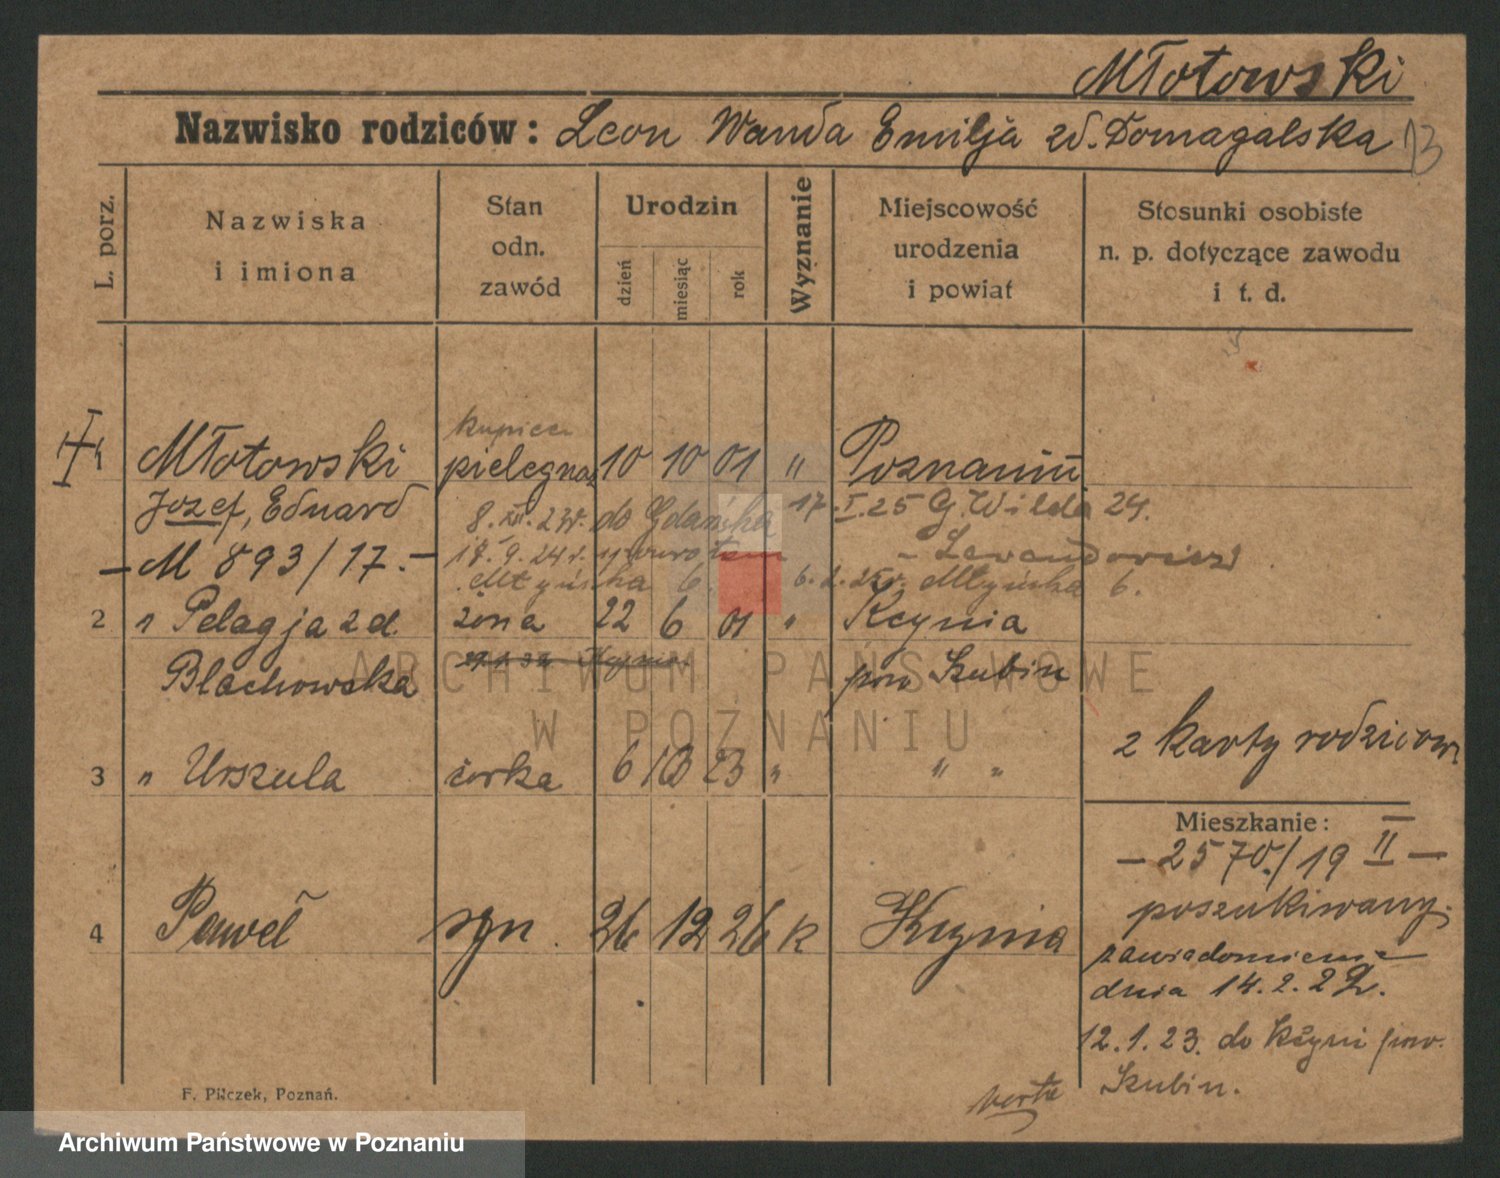 Młotowski
Nazwisko rodziców: Leon Wanda Emilja zd. Domagalska 13
L. porz.
Nazwiska i imiona
Stan odn. zawód
Urodzin
dzień
miesiąc
rok
Wyznanie
Miejscowość urodzenia i powiat
Stosunki osobiste n. p. dotyczące zawodu i t. d.
kupiec
1 Młotowski pielegnaż 10 10 01 " Poznaniu
Józef, Eduard 8. XII. 23r. do Gdańska 17. I. 25 G. Wilda 24.
— M 893/17. — 17. 9. 24 r. z powrotem
Młyńska 6. 6. 2. 25r. Młyńska 6.
2 " Pelagja zd. żona 22 6 01 " Kcynia
Blachowska pow Szubin
2 karty rodzicow
3 " Urszula córka 6 10 23 " " "
Mieszkanie:
— 2570./19 II —
poszukiwany.
4 Paweł syn. 26 12 26 k Kcynia
zawiadomienie
dnia 14. 2. 22.
12. 1. 23. do Kcyni pow.
Szubin.
verte
F. Pilczek, Poznań.
ARCHIWUM PAŃSTWOWE
W POZNANIU
Archiwum Państwowe w Poznaniu